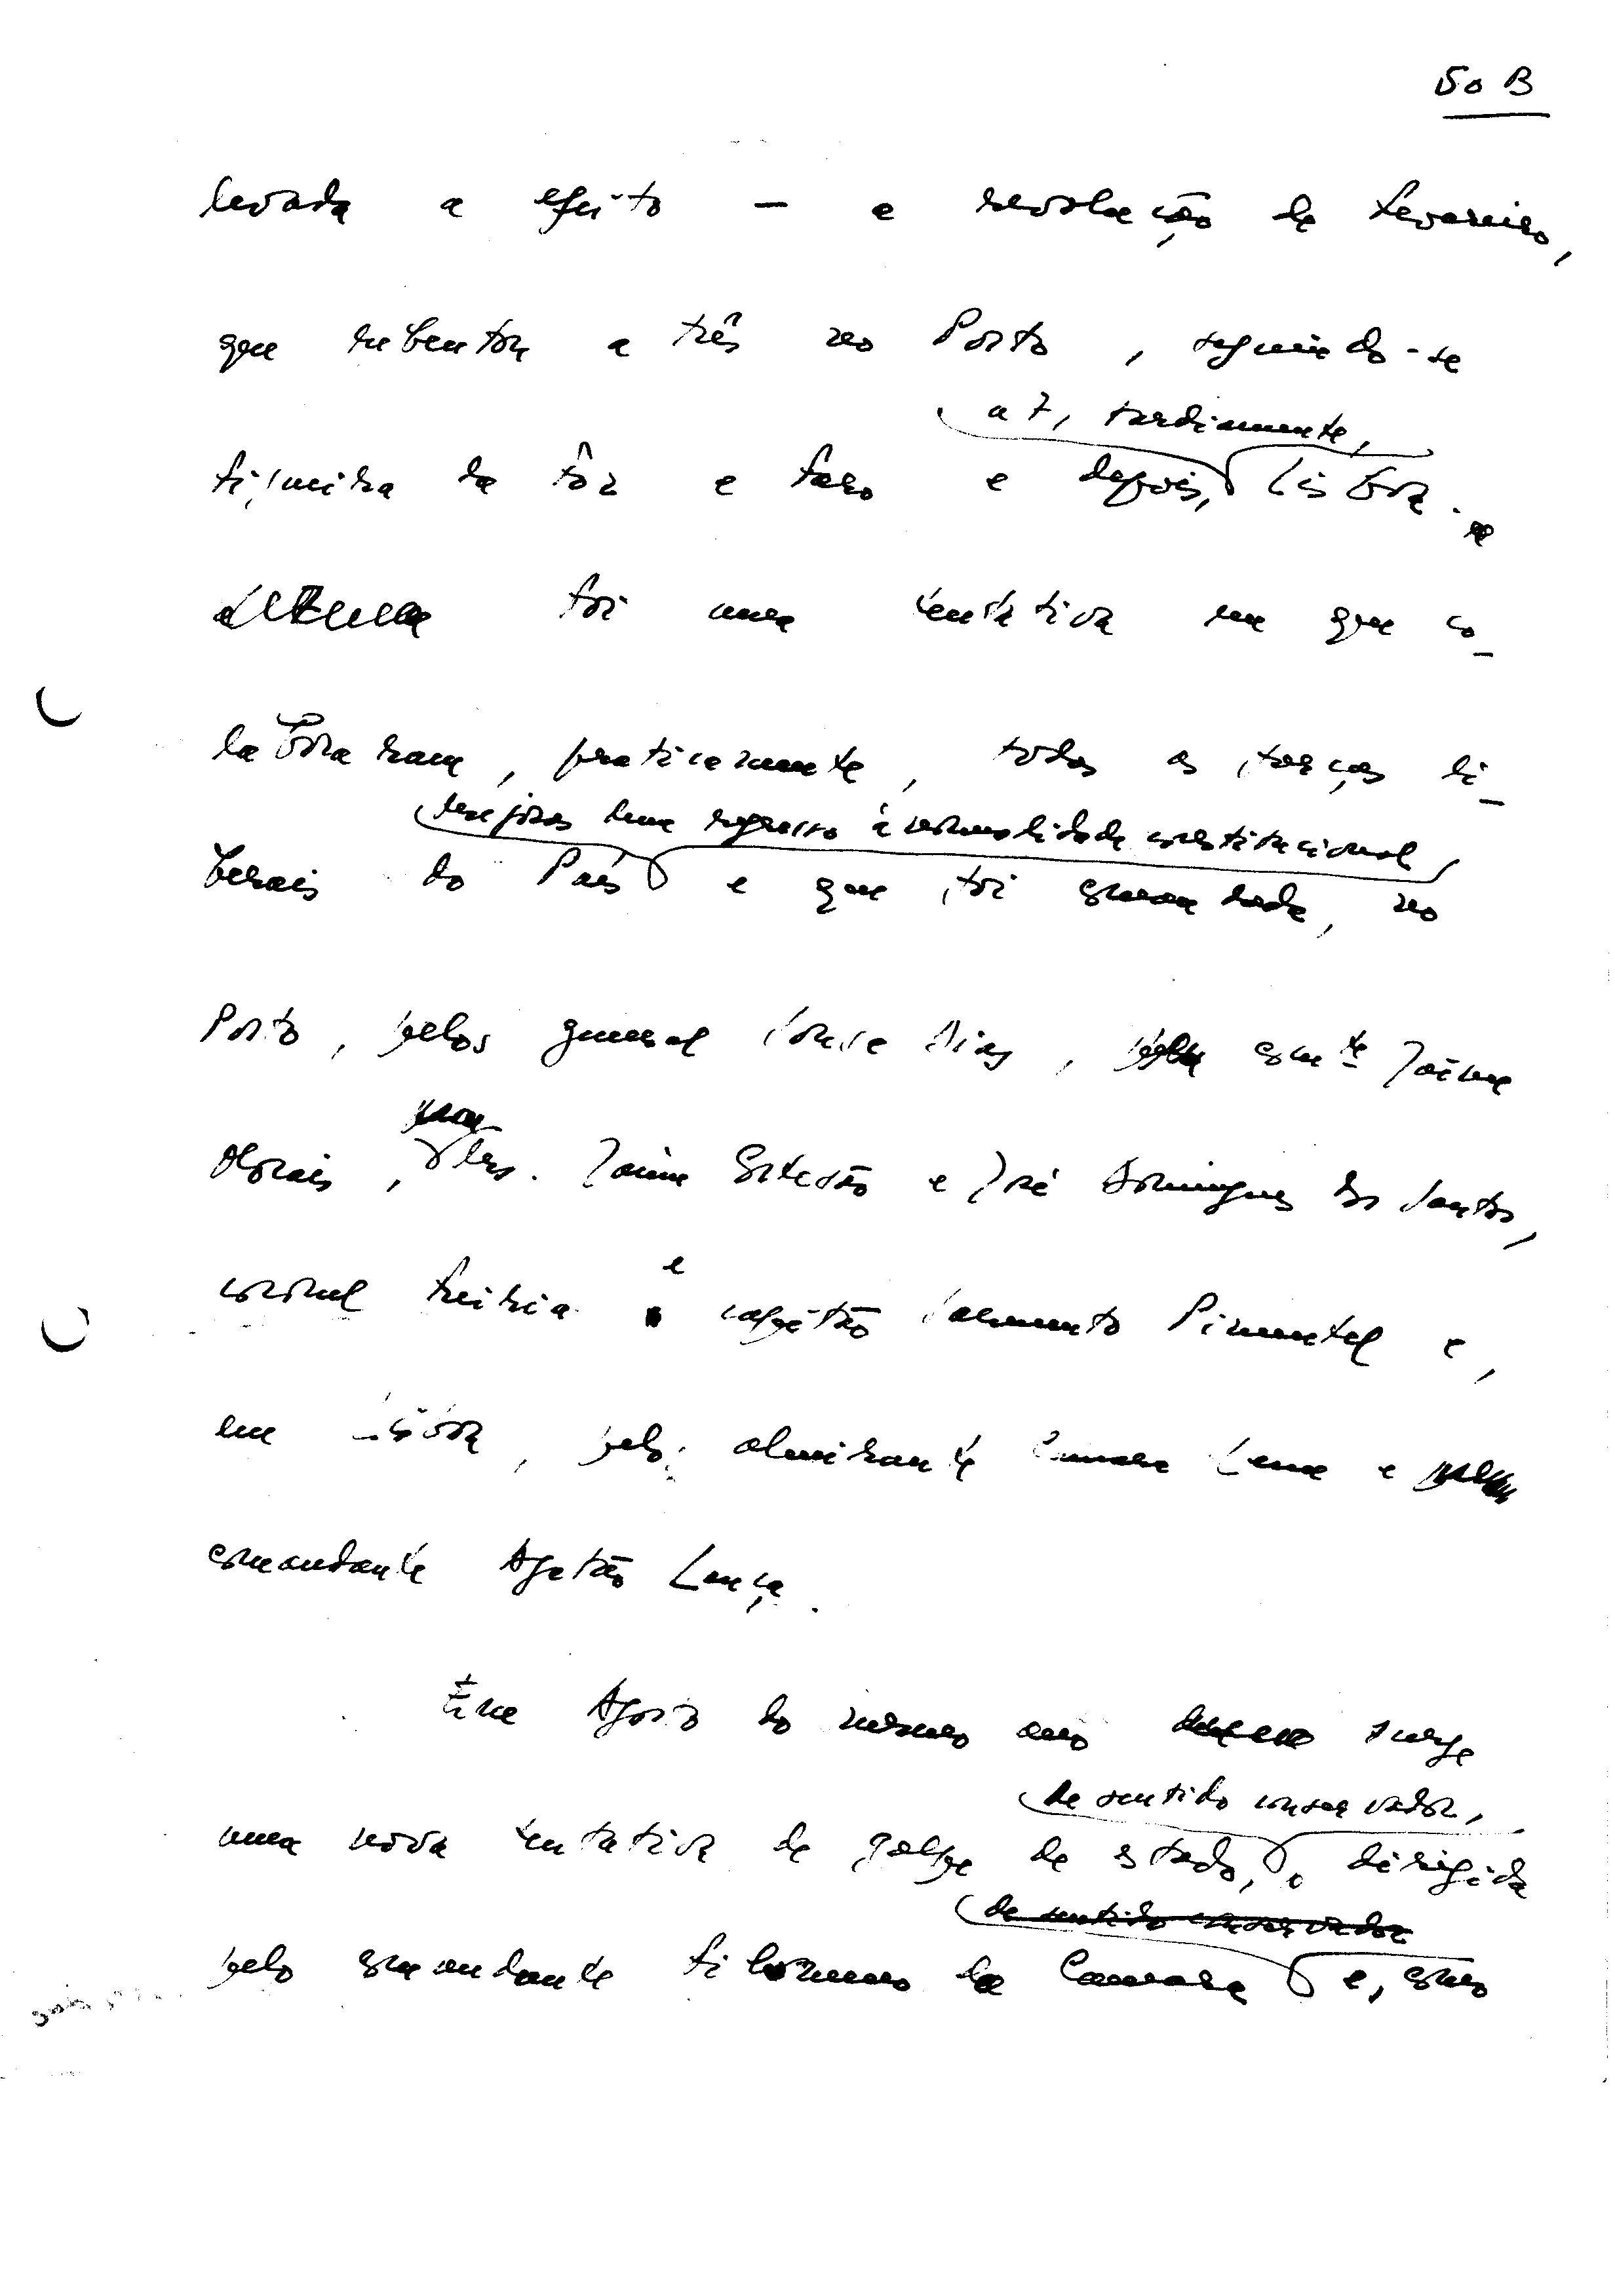 50 B
levada a efeito — a revolução de Fevereiro,
que rebentou a três no Porto, seguindo-se
a 7, tardiamente,
Figueira da Foz e Faro e depois, Lisboa.
foi uma tentativa em que co-
laboraram, praticamente, todas as forças li-
desejosas dum regresso à normalidade constitucional,
berais do País e que foi comandada, no
Porto, pelos general Sousa Dias, com.te Jaime
Morais, drs. Jaime Cortesão e José Domingues dos Santos,
e
coronel Freiria capitão Sarmento Pimentel e,
em Lisboa, pelo almirante Camara Leme e
comandante Agatão Lança.
Em Agosto do mesmo ano surge
de sentido conservador,
uma nova tentativa de golpe de estado, dirigida
de sentido conservador
pelo comandante Filomeno da Camara e, como